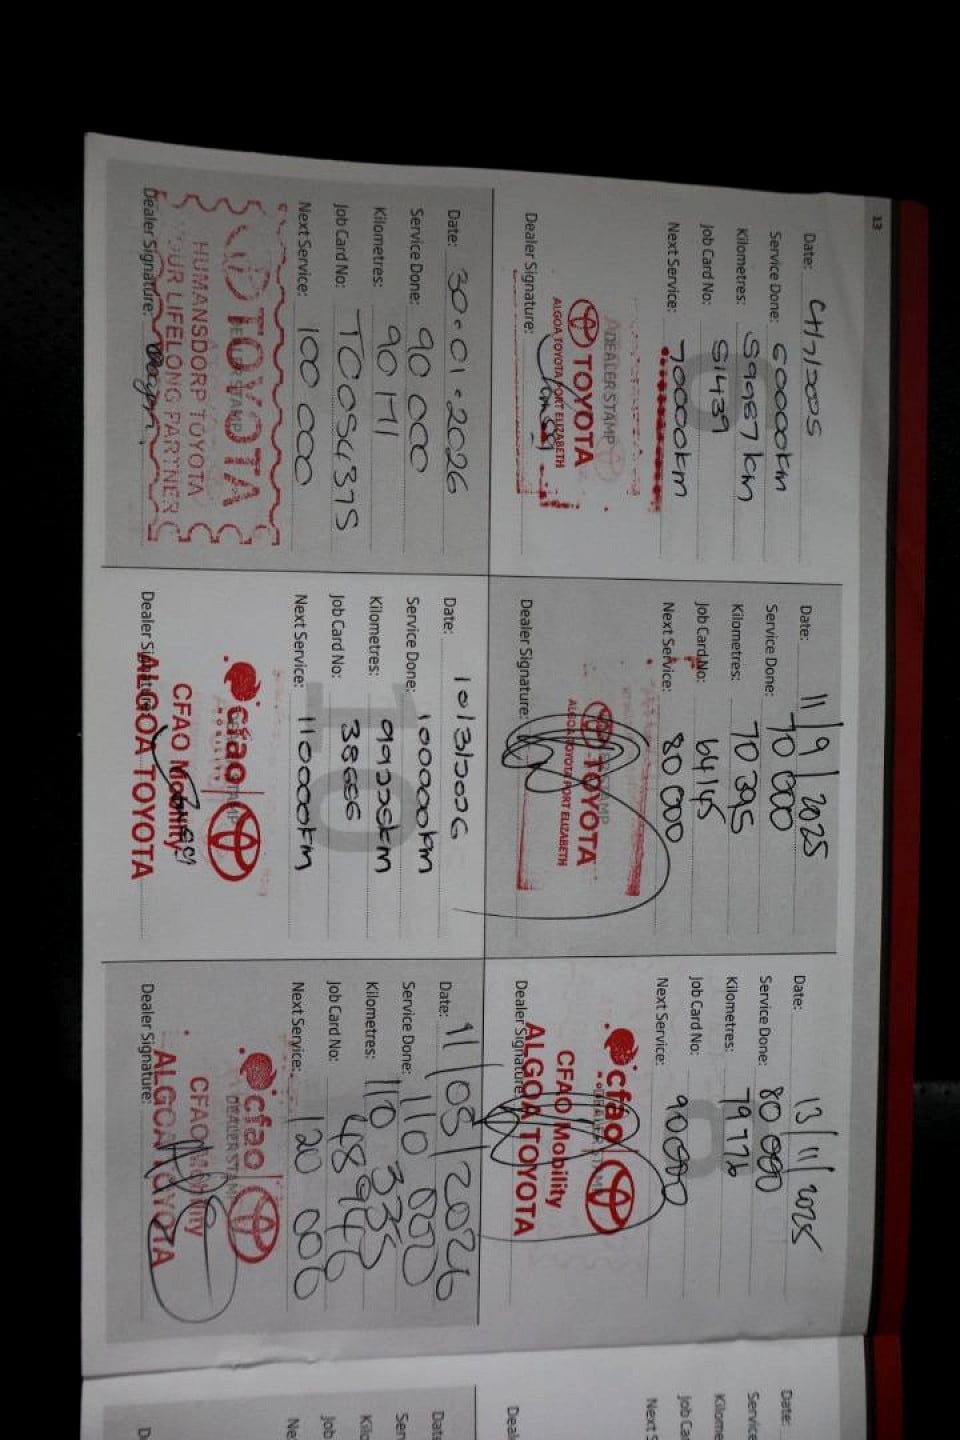 13
Date: 4/7/2025
Service Done: 60000km
Kilometres: 59987km
Job Card No: 51439
Next Service: 70000km
DEALER STAMP
TOYOTA
ALGOA TOYOTA PORT ELIZABETH
Dealer Signature:
Date: 11/9/2025
Service Done: 70 000
Kilometres: 70 395
Job Card No: 64145
Next Service: 80 000
TOYOTA
ALGOA TOYOTA PORT ELIZABETH
Dealer Signature:
Date: 13/11/2025
Service Done: 80 000
Kilometres: 79776
Job Card No:
Next Service: 90000
cfao
MOBILITY
CFAO Mobility
ALGOA TOYOTA
Dealer Signature:
Date: 30.01.2026
Service Done: 90 000
Kilometres: 90171
Job Card No: T00SC437S
Next Service: 100 000
DEALER STAMP
TOYOTA
HUMANSDORP TOYOTA
YOUR LIFELONG PARTNER
Dealer Signature:
10
Date: 10/3/2026
Service Done: 100000km
Kilometres: 99225km
Job Card No: 38666
Next Service: 110000km
cfao
MOBILITY
CFAO Mobility
ALGOA TOYOTA
Dealer Signature:
Date: 11/05/2026
Service Done: 110 000
Kilometres: 110 335
Job Card No: 48946
Next Service: 120 000
DEALER STAMP
cfao
CFAO Mobility
ALGOA TOYOTA
Dealer Signature:
Date:
Service
Kilome
Job Ca
Next S
Deal
Date:
Serv
Kil
Job
Ne
D